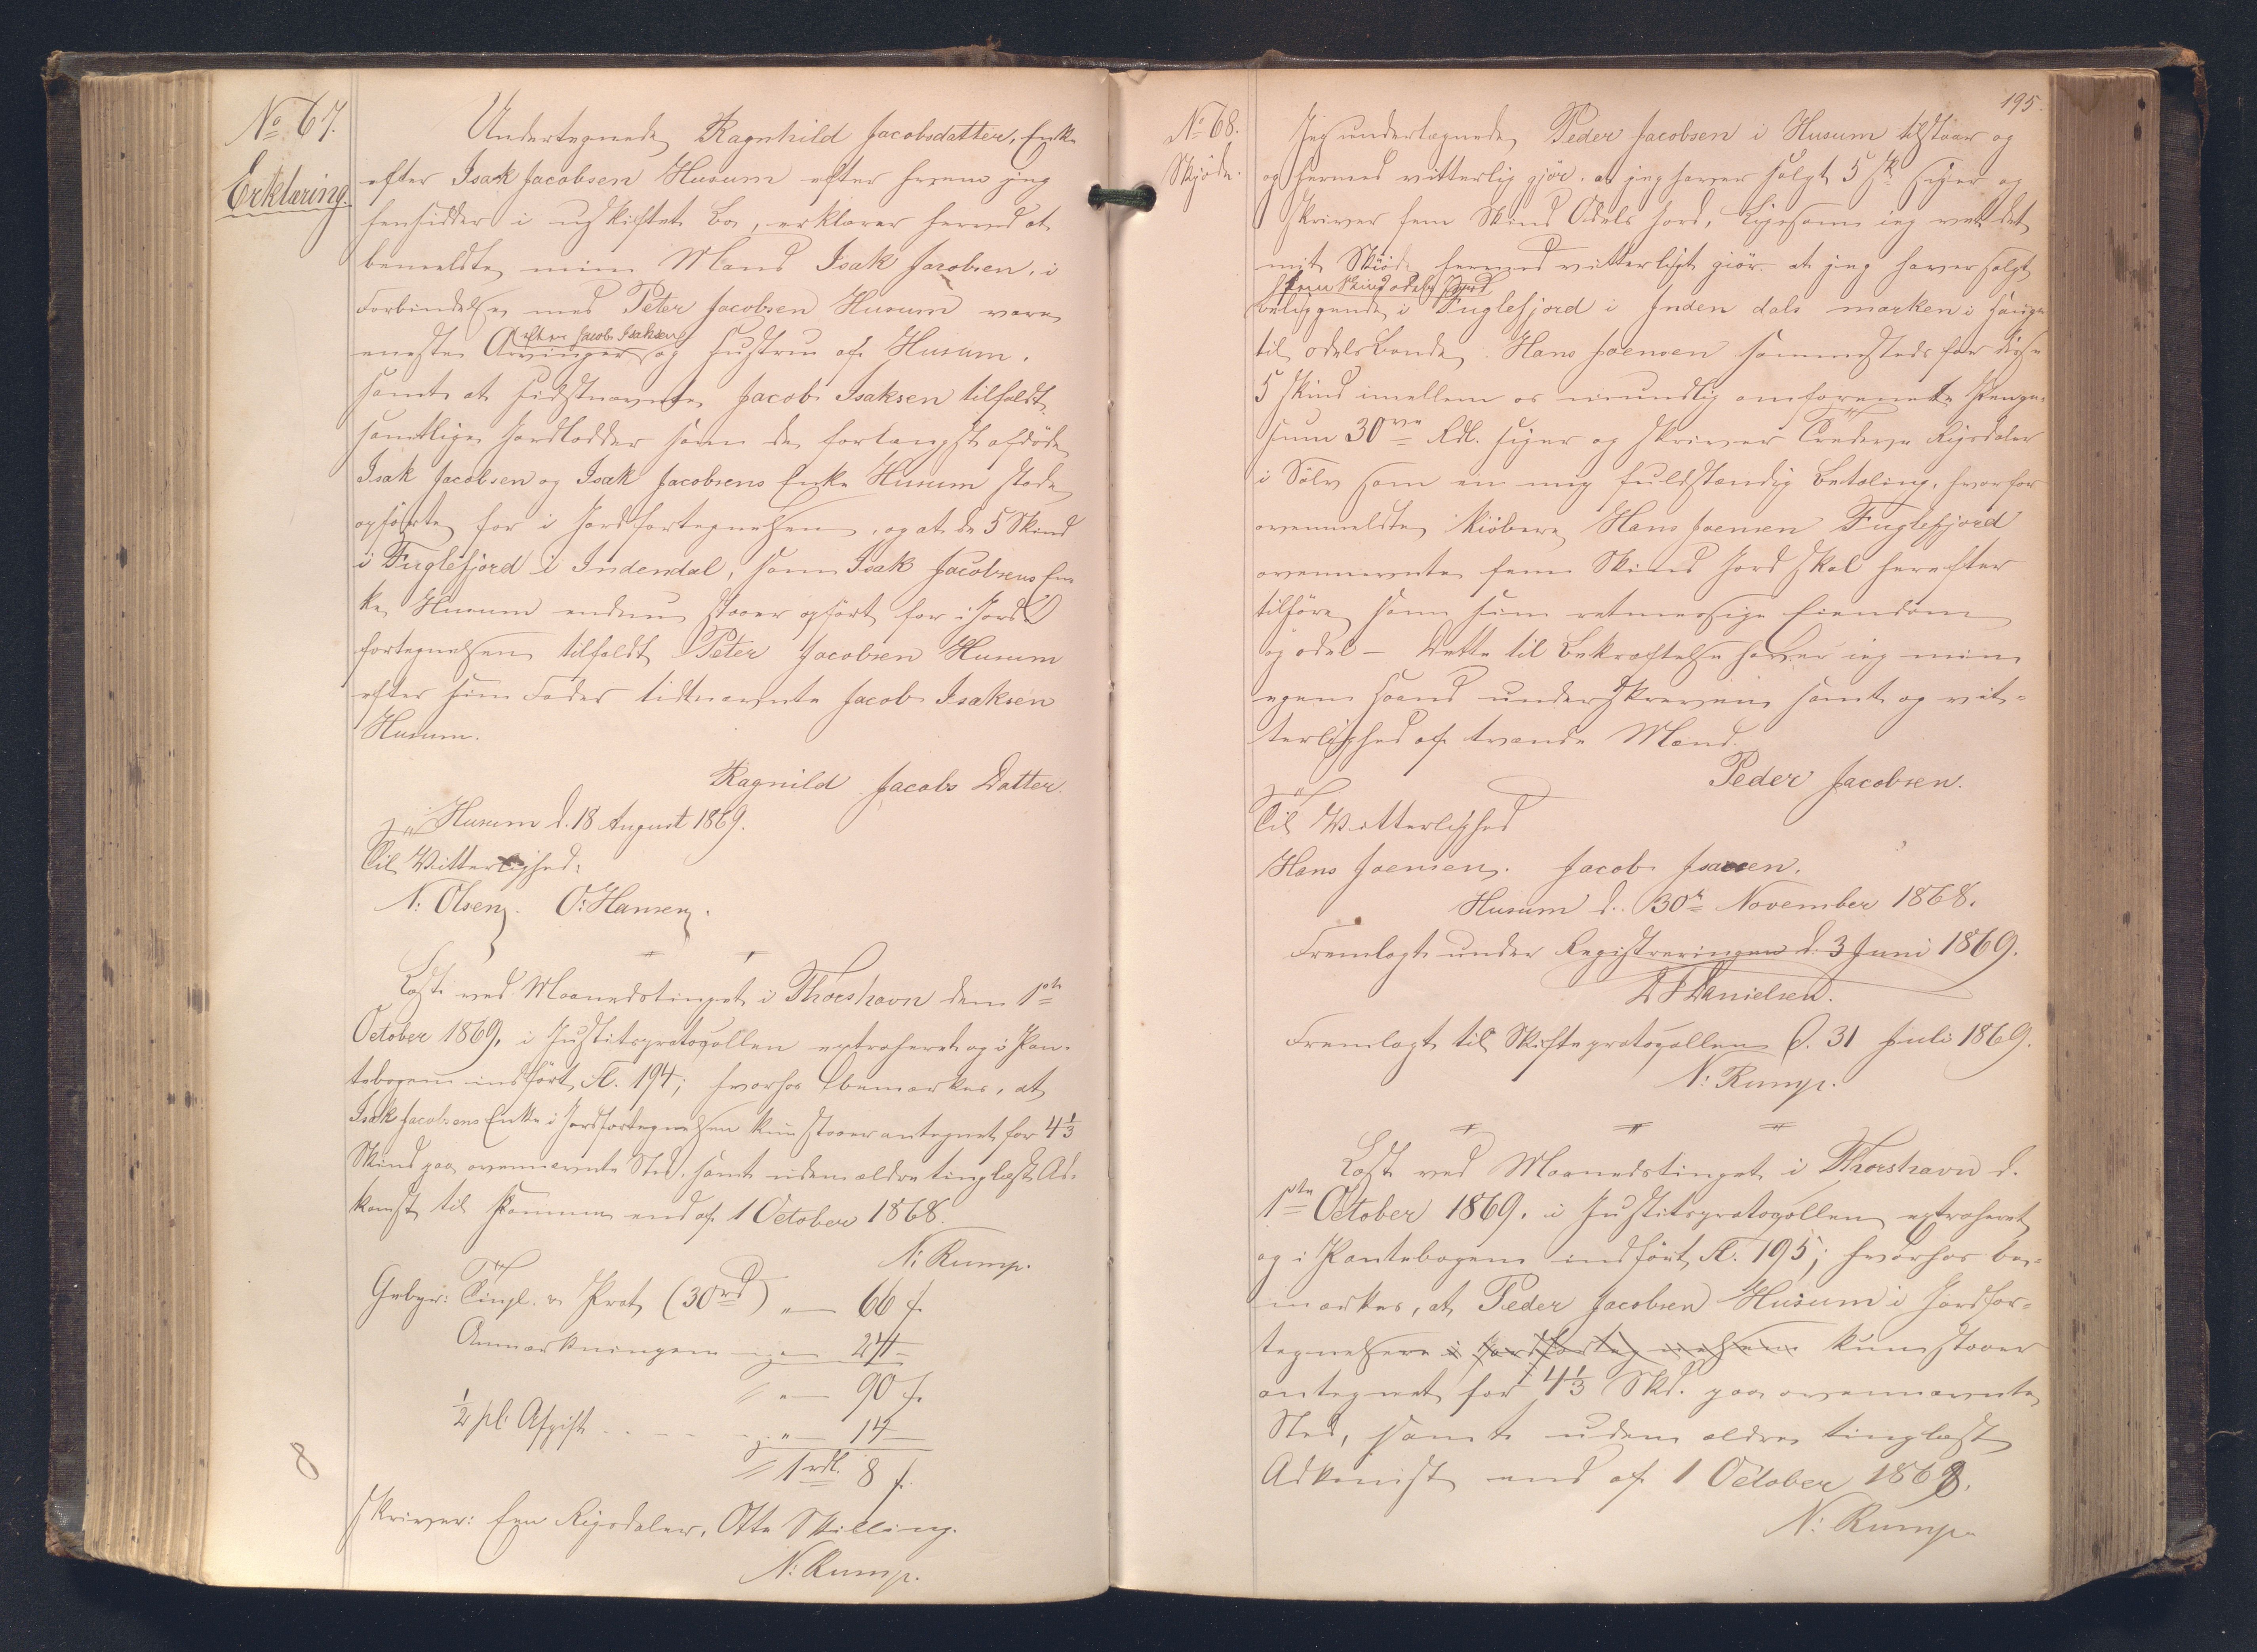 No 67.
Erklæring.
Undertegnede Ragnhild Jacobsdatter, Enke
efter Isak Jacobsen Husum efter hvem jeg
hensidder i uskiftet Bo, erklærer herved at
bemeldte min Mand Isak Jacobsen, i
Forbindelse med Peter Jacobsen Husum vare
eneste Arvinger efter Jacob Isaksen og Hustru af Husum,
samt at sidstnævnte Jacob Isaksen tilfaldt
samtlige Jordlodder som de forlængst afdøde
Isak Jacobsen og Isak Jacobsens Enke Husum stode
opførte for i Jordfortegnelsen, og at de 5 Skind
i Fuglefjord i Indendal, som Isak Jacobsens En-
ke Husum endnu staaer opført for i Jord-
fortegnelsen tilfaldt Peter Jacobsen Husum
efter sin Fader tidtnævnte Jacob Isaksen
Husum.
Ragnild Jacobs Datter.
Husum d. 18 August 1869.
Til Vitterlighed:
N: Olsen. O: Hansen.
Læst ved Maanedstinget i Thorshavn den 1ste
October 1869, i Justitsprotocollen extraheret og i Pan-
tebogen indført Fl. 194; hvorhos bemærkes, at
Isak Jacobsens Enke i Jordfortegnelsen kun staaer antegnet for 4 1/3
Skind paa ovennævnte Sted, samt uden ældre tinglæst Ad-
komst til samme end af 1 October 1868.
N: Rump.
Gebyr: Tingl. & Prot. (30rd) " — 66 s.
Anmærkningen — " — 24 —
" — 90 s.
1/2 pCt Afgift . . . . " — 14 —
1 rdl. 8 s.
skriver: Een Rigsdaler, Otte Skilling.
N: Rump.
8
195.
No 68.
Skjøde.
Jeg undertegnede Peder Jacobsen i Husum tilstaar og
og hermed vitterlig gjør, at jeg haver solgt 5 Sk siger og
skriver fem Skind Odels Jord, Ligesom jeg ved det
mit Skiøde hermed vitterligt giør at jeg haver solgt
fem Skind odels Jord
beliggende i Fuglefjord i Inden dals marken i Hauge
til odelsbonde Hans Joensen sammesteds for disse
5 skind imellem os mundlig omforenede Penge-
sum 30ve Rdl. siger og skriver Tredeve Rigsdaler
i Sølv som er mig fuldstændig betaling, hvorfor
ovenmeldte kiøbere Hans Joensen Fuglefjord
ovennevnte fem Skind Jord skal herefter
tilhøre som sin retmessige Eiendom
og odel — dette til Bekræftelse haver jeg min
egen Haand underskreven samt og vit-
terlighed af tvende Mænd.
Peder Jacobsen.
Til Vitterlighed
Hans Joensen. Jacob Joensen.
Husum d. 30te November 1868.
Fremlagt under Registreringen d. 3 Juni 1869.
D J Danielsen.
Fremlagt til Skifteprotocollen d. 31 Juli 1869.
N: Rump.
Læst ved Maanedstinget i Thorshavn d.
1ste October 1869, i Justitsprotocollen extraheret
og i Pantebogen indført Fl. 195; hvorhos be-
mærkes, at Peder Jacobsen Husum i Jordfor-
tegnelsen i Jordfortegnelsen kun staaer
antegnet for 4 1/3 Skd. paa ovennævnte
Sted, samt uden ældre tinglæst
Adkomst end af 1 October 1868.
N: Rump.